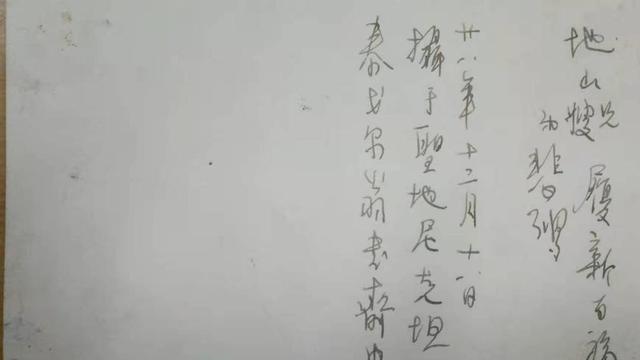 地山兄嫂 履新百福
悲鸿
廿八年十二月十八日
攝于聖地尼克坦
泰戈尔翁書齋